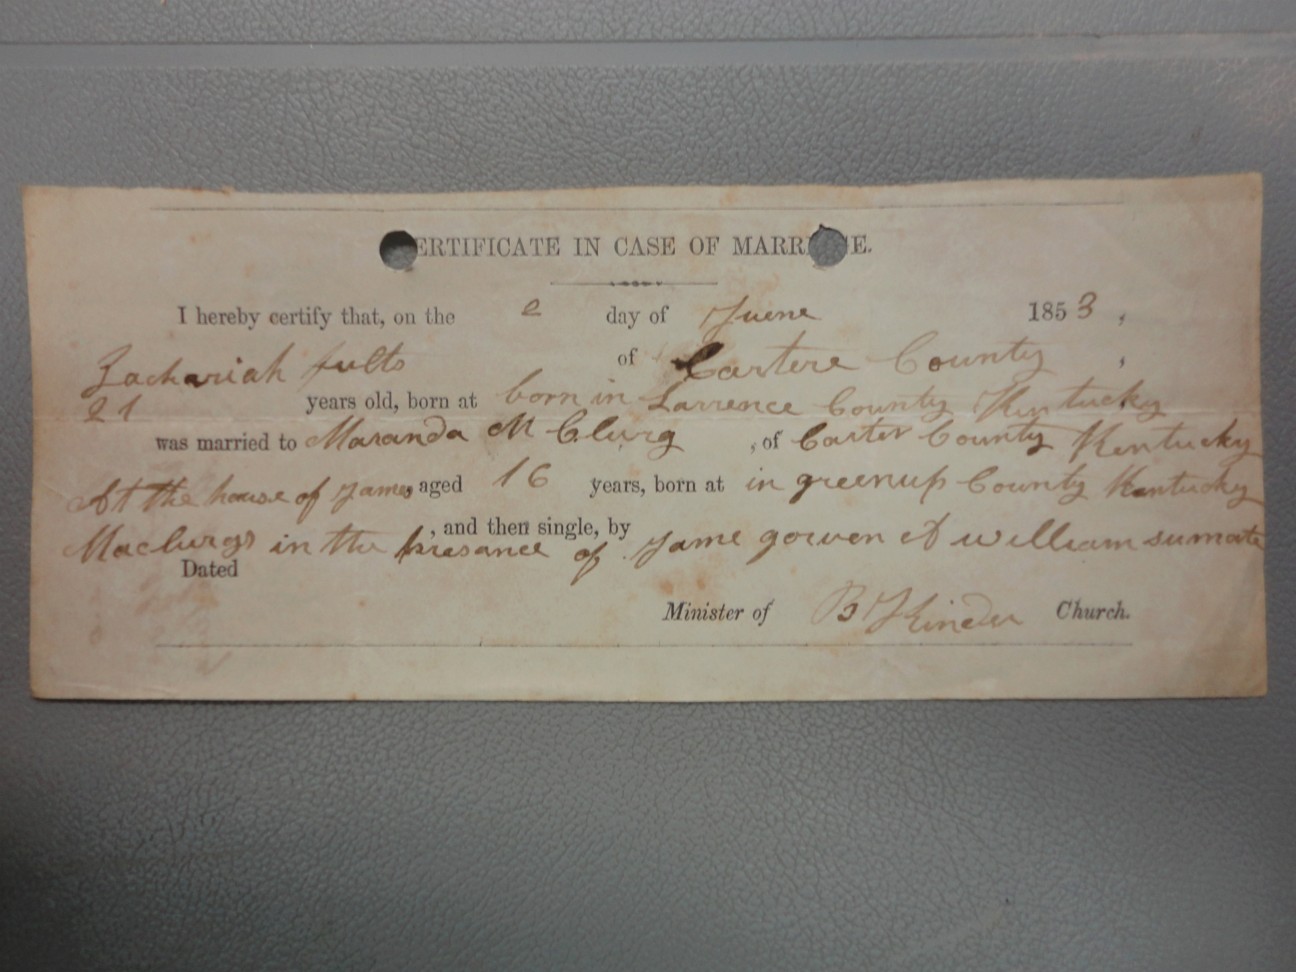 ERTIFICATE IN CASE OF MARR E.
I hereby certify that, on the 2 day of Juene 1853,
Zachariah fults of Cartere County,
21 years old, born at born in Larrence County Kentucky
was married to Maranda M Clurg, of Carter County Kentucky
At the house of James aged 16 years, born at in greenup County Kentucky
Maclurgs in the presance, and then single, by of Jame gowen & william sumate
Dated
Minister of B F Kinder Church.